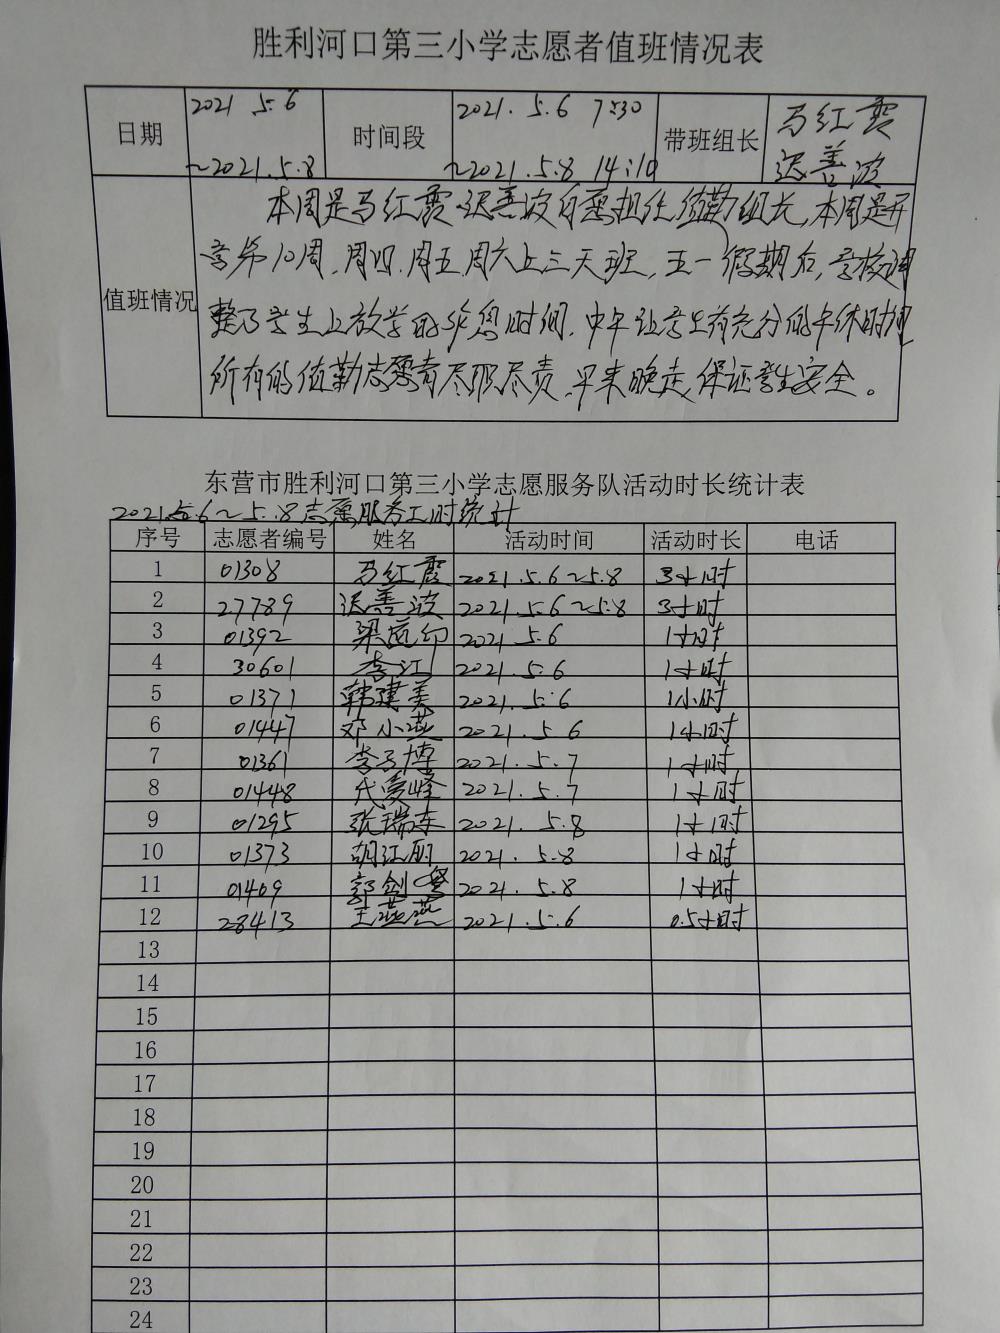 胜利河口第三小学志愿者值班情况表
日期 2021 5.6 ~2021.5.8 时间段 2021.5.6 7:30 ~2021.5.8 14:10 带班组长 马红霞 迟善波
值班情况
本周是马红霞、迟善波自愿担任值勤组长,本周是开
学第10周,周四、周五、周六上三天班,五一假期后,学校调
整了学生上放学的作息时间,中午让学生有充分的午休时间
所有的值勤志愿者尽职尽责,早来晚走,保证学生安全。
东营市胜利河口第三小学志愿服务队活动时长统计表
2021.5.6~5.8志愿服务工时统计
序号 志愿者编号 姓名 活动时间 活动时长 电话
1 01308 马红霞 2021.5.6~5.8 3小时
2 27789 迟善波 2021.5.6~5.8 3小时
3 01392 2021.5.6 1小时
4 30601 李江 2021.5.6 1小时
5 01371 韩建美 2021.5.6 1小时
6 01447 邓小燕 2021.5.6 1小时
7 01361 李子博 2021.5.7 1小时
8 01448 2021.5.7 1小时
9 01295 张瑞东 2021.5.8 1小时
10 01373 胡江丽 2021.5.8 1小时
11 01409 2021.5.8 1小时
12 28413 王燕燕 2021.5.6 0.5小时
13
14
15
16
17
18
19
20
21
22
23
24